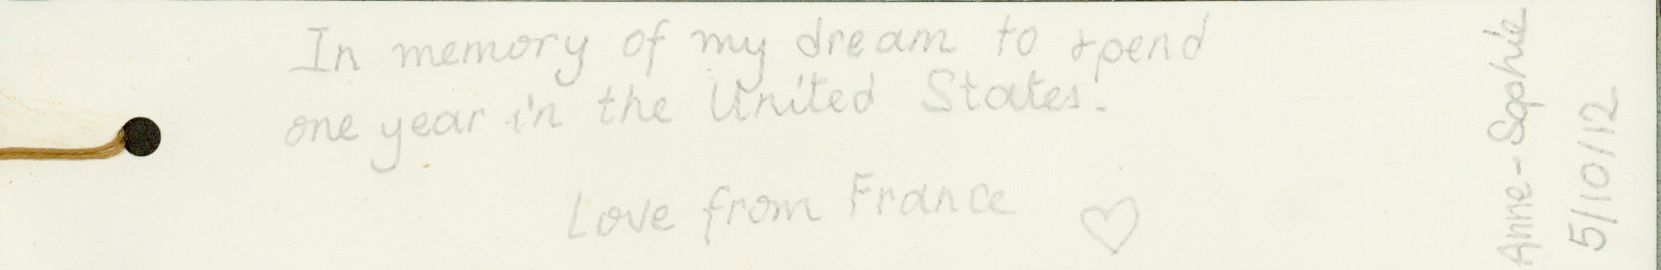 In memory of my dream to spend
one year in the United States.
Love from France ♡
Anne-Sophie
5/10/12